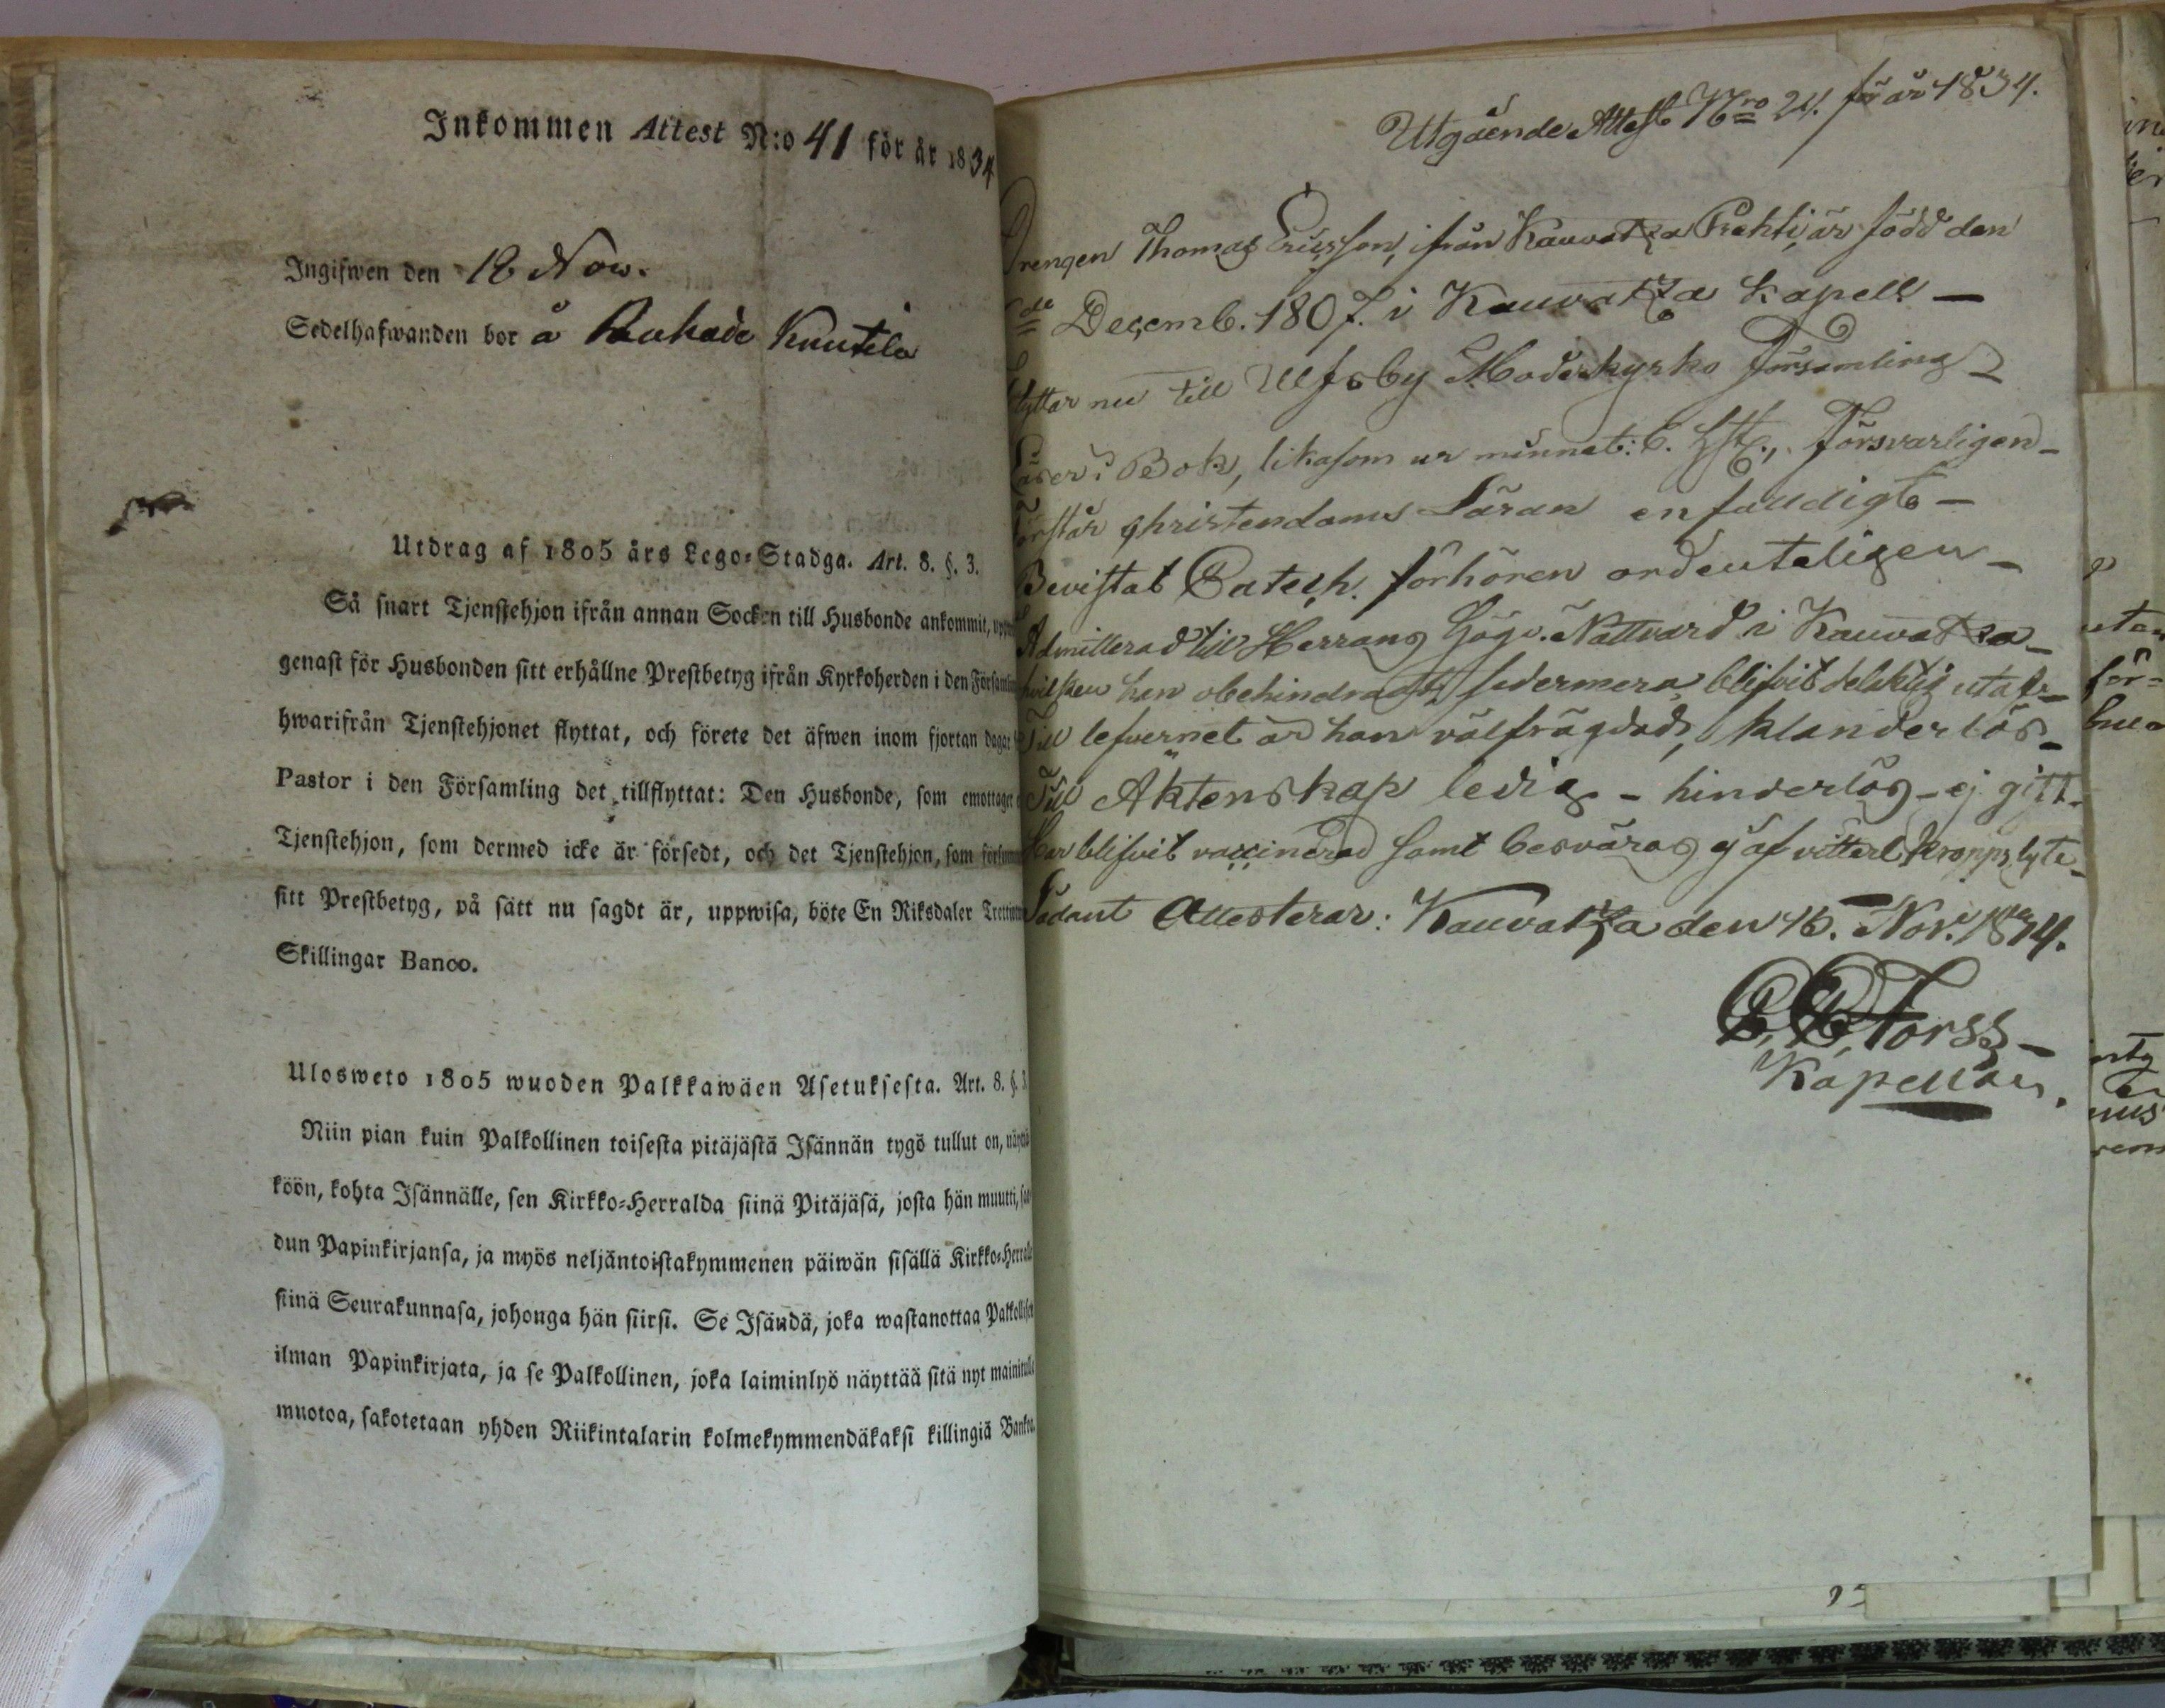 Inkommen Attest N:o 41 för år 1834
Ingifwen den 18 Nov.
Sedelhafwanden bor å Ruhade Knutila
Utdrag af 1805 års Lego-Stadga. Art. 8. §. 3.
Så snart Tjenstehjon ifrån annan Socken till Husbonde ankommit,
genast för Husbonden sitt erhållne Prestbetyg ifrån Kyrkoherden i den Församlin
hwarifrån Tjenstehjonet flyttat, och förete det äfwen inom fjortan dagar
Pastor i den Församling det tillflyttat: Den Husbonde, som emottager
Tjenstehjon, som dermed icke är försedt, och det Tjenstehjon, som försum
sitt Prestbetyg, på sätt nu sagdt är, uppwisa, böte En Riksdaler Trettiotvå
Skillingar Banco.
Ulosweto 1805 wuoden Palkkawäen Asetuksesta. Art. 8. §. 3
Niin pian kuin Palkollinen toisesta pitäjästä Isännän tygö tullut on, näyttä
köön, kohta Isännälle, sen Kirkko-Herralda siinä Pitäjäsä, josta hän muutti, saa
dun Papinkirjansa, ja myös neljäntoistakymmenen päiwän sisällä Kirkko-Herralle
siinä Seurakunnasa, johonga hän siirsi. Se Isändä, joka wastanottaa Palkollisen
ilman Papinkirjata, ja se Palkollinen, joka laiminlyö näyttää sitä nyt mainitulla
muotoa, sakotetaan yhden Riikintalarin kolmekymmendäkaksi killingiä Bankoa.
Utgående Attest Nro 24. för år 1834.
Drengen Thomas Ericsson, ifrån Kauvatza Prehti, är född den
de Decemb. 1807. i Kauvatza Kapell —
flyttar nu till Ulfsby Moderkyrko Församling —
Läser i Bok, likasom ur minnet: C. Hft., Försvarligen —
örstår christendoms Läran enfaldigt —
Bevistat Catech. förhören ordenteligen —
Admitterad till Herrans Högv. Nattvard i Kauvatza —
hvilken han obehindradt sedermera blifvit delaktig utaf —
Till lefvernet är han välfrägdad, klanderlös —
Till Äktenskap ledig - hinderlös - ej gift -
Har blifvit vaccinerad samt besväras ej af vitterl. kropps lyte —
Sådant Attesterar: Kauvatza den 16. Nov. 1834.
Forss —
Kapellan.